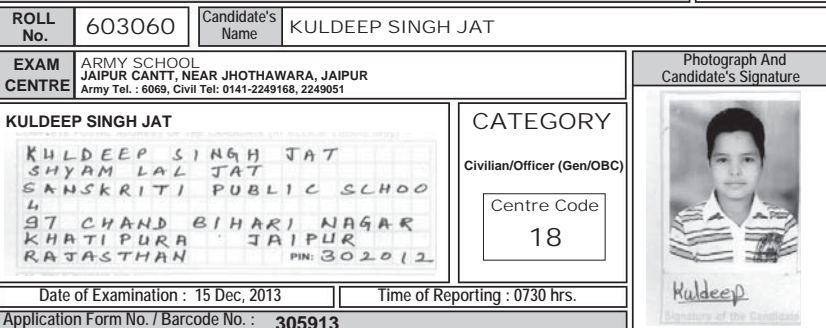 ROLL No. 603060 Candidate's Name KULDEEP SINGH JAT
EXAM CENTRE
ARMY SCHOOL
JAIPUR CANTT, NEAR JHOTHAWARA, JAIPUR
Army Tel. : 6069, Civil Tel: 0141-2249168, 2249051
Photograph And
Candidate's Signature
KULDEEP SINGH JAT
KULDEEP SINGH JAT
SHYAM LAL JAT
SANSKRITI PUBLIC SCHOO
L
97 CHAND BIHARI NAGAR
KHATIPURA JAIPUR
RAJASTHAN PIN: 302012
CATEGORY
Civilian/Officer (Gen/OBC)
Centre Code
18
Kuldeep
Signature of the Candidate
Date of Examination : 15 Dec, 2013 Time of Reporting : 0730 hrs.
Application Form No. / Barcode No. : 305913